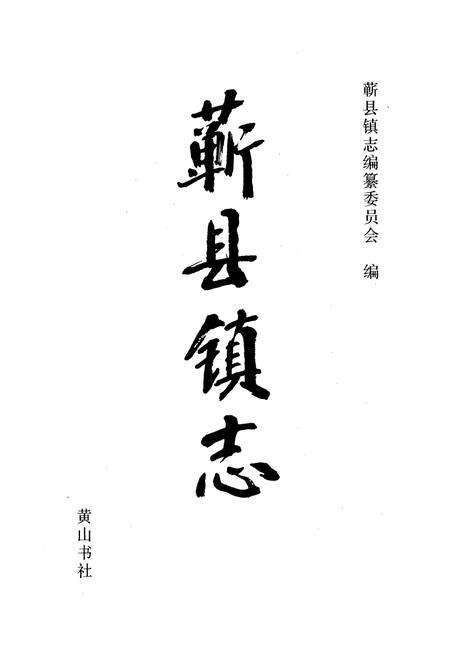 蕲县镇志编纂委员会 编
蕲县镇志
黄山书社